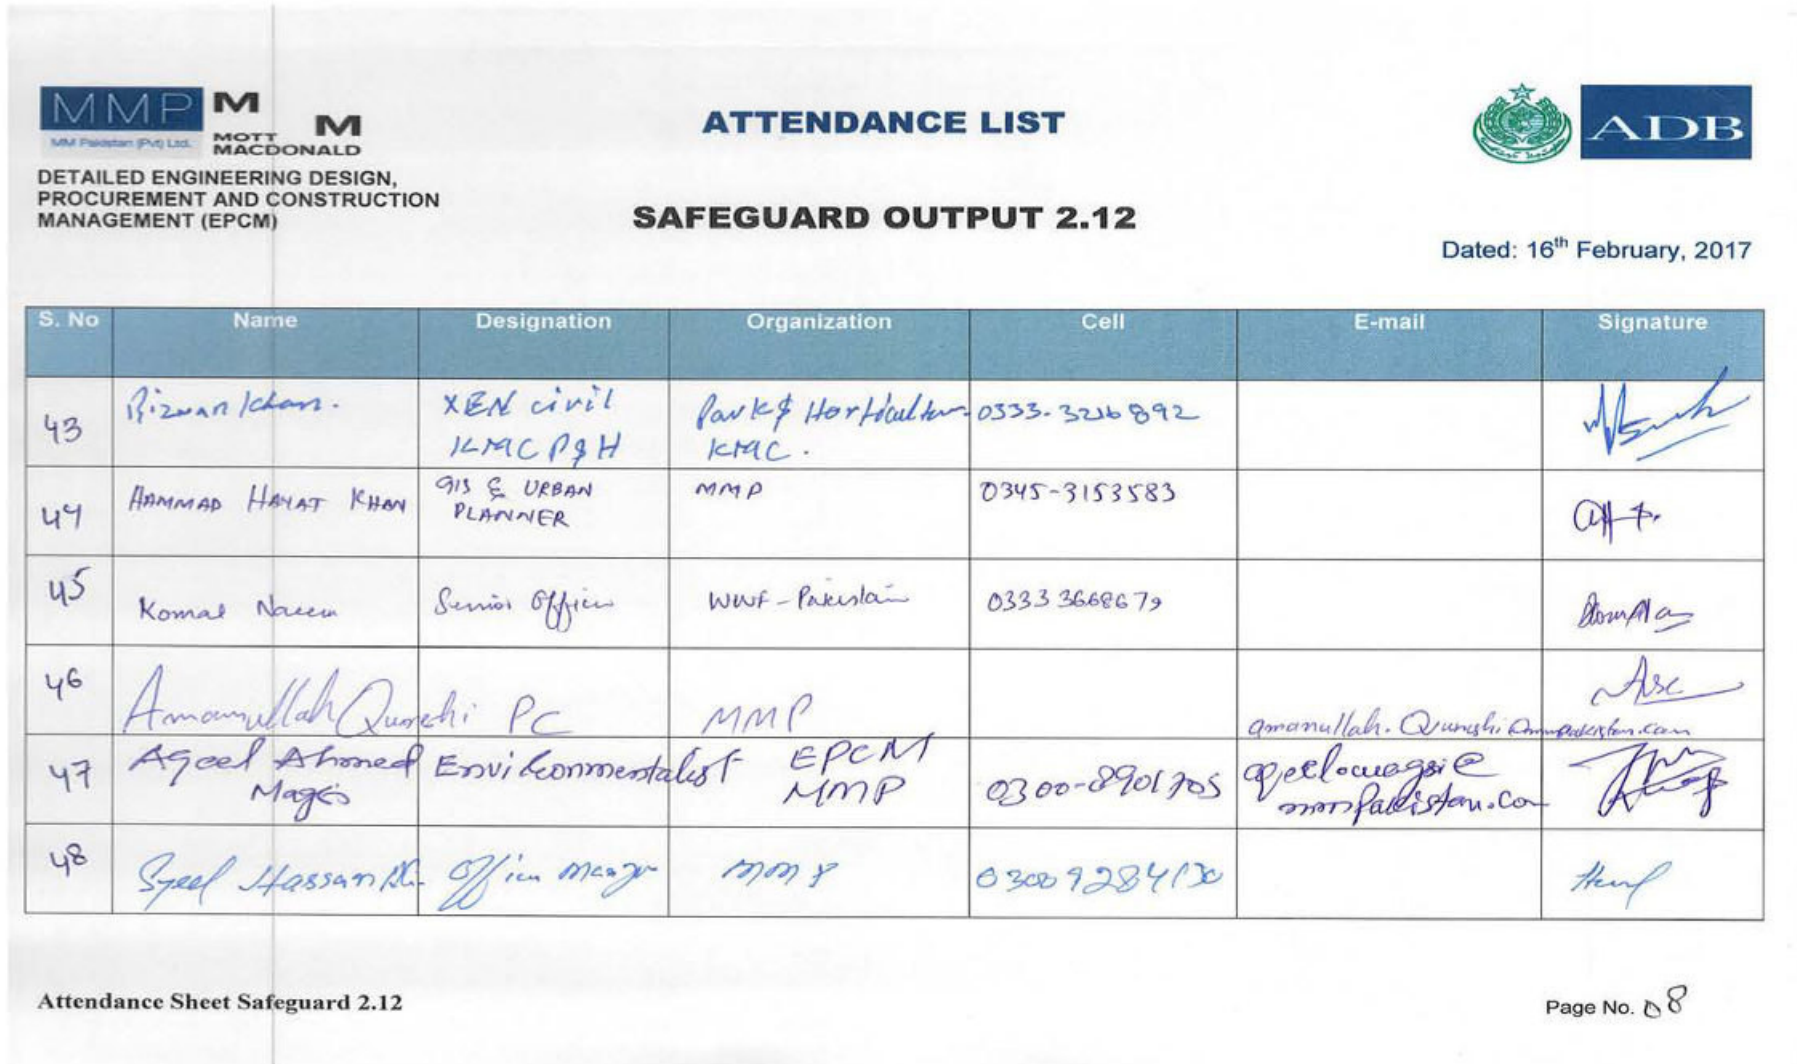 MMP
MM Pakistan (Pvt) Ltd.
M M
MOTT
MACDONALD
ATTENDANCE LIST
ADB
DETAILED ENGINEERING DESIGN,
PROCUREMENT AND CONSTRUCTION
MANAGEMENT (EPCM)
SAFEGUARD OUTPUT 2.12
Dated: 16th February, 2017
S. No Name Designation Organization Cell E-mail Signature
43 Rizwan Khan. XEN civil Park & Horticulture 0333-3216892
KMC P&H KMC.
44 HAMMAD HAYAT KHAN GIS & URBAN MMP 0345-3153583
PLANNER
45 Komal Naeem Senior Officer WWF-Pakistan 0333 3668679
46 Amanullah Qureshi PC MMP amanullah.Qureshi@mmpakistan.com
47 Aqeel Ahmed Environmentalist EPCM 0300-8901705
Magsi MMP mmpakistan.com
48 Syed Hassan Ali Office Manager MMP
Attendance Sheet Safeguard 2.12
Page No. 08